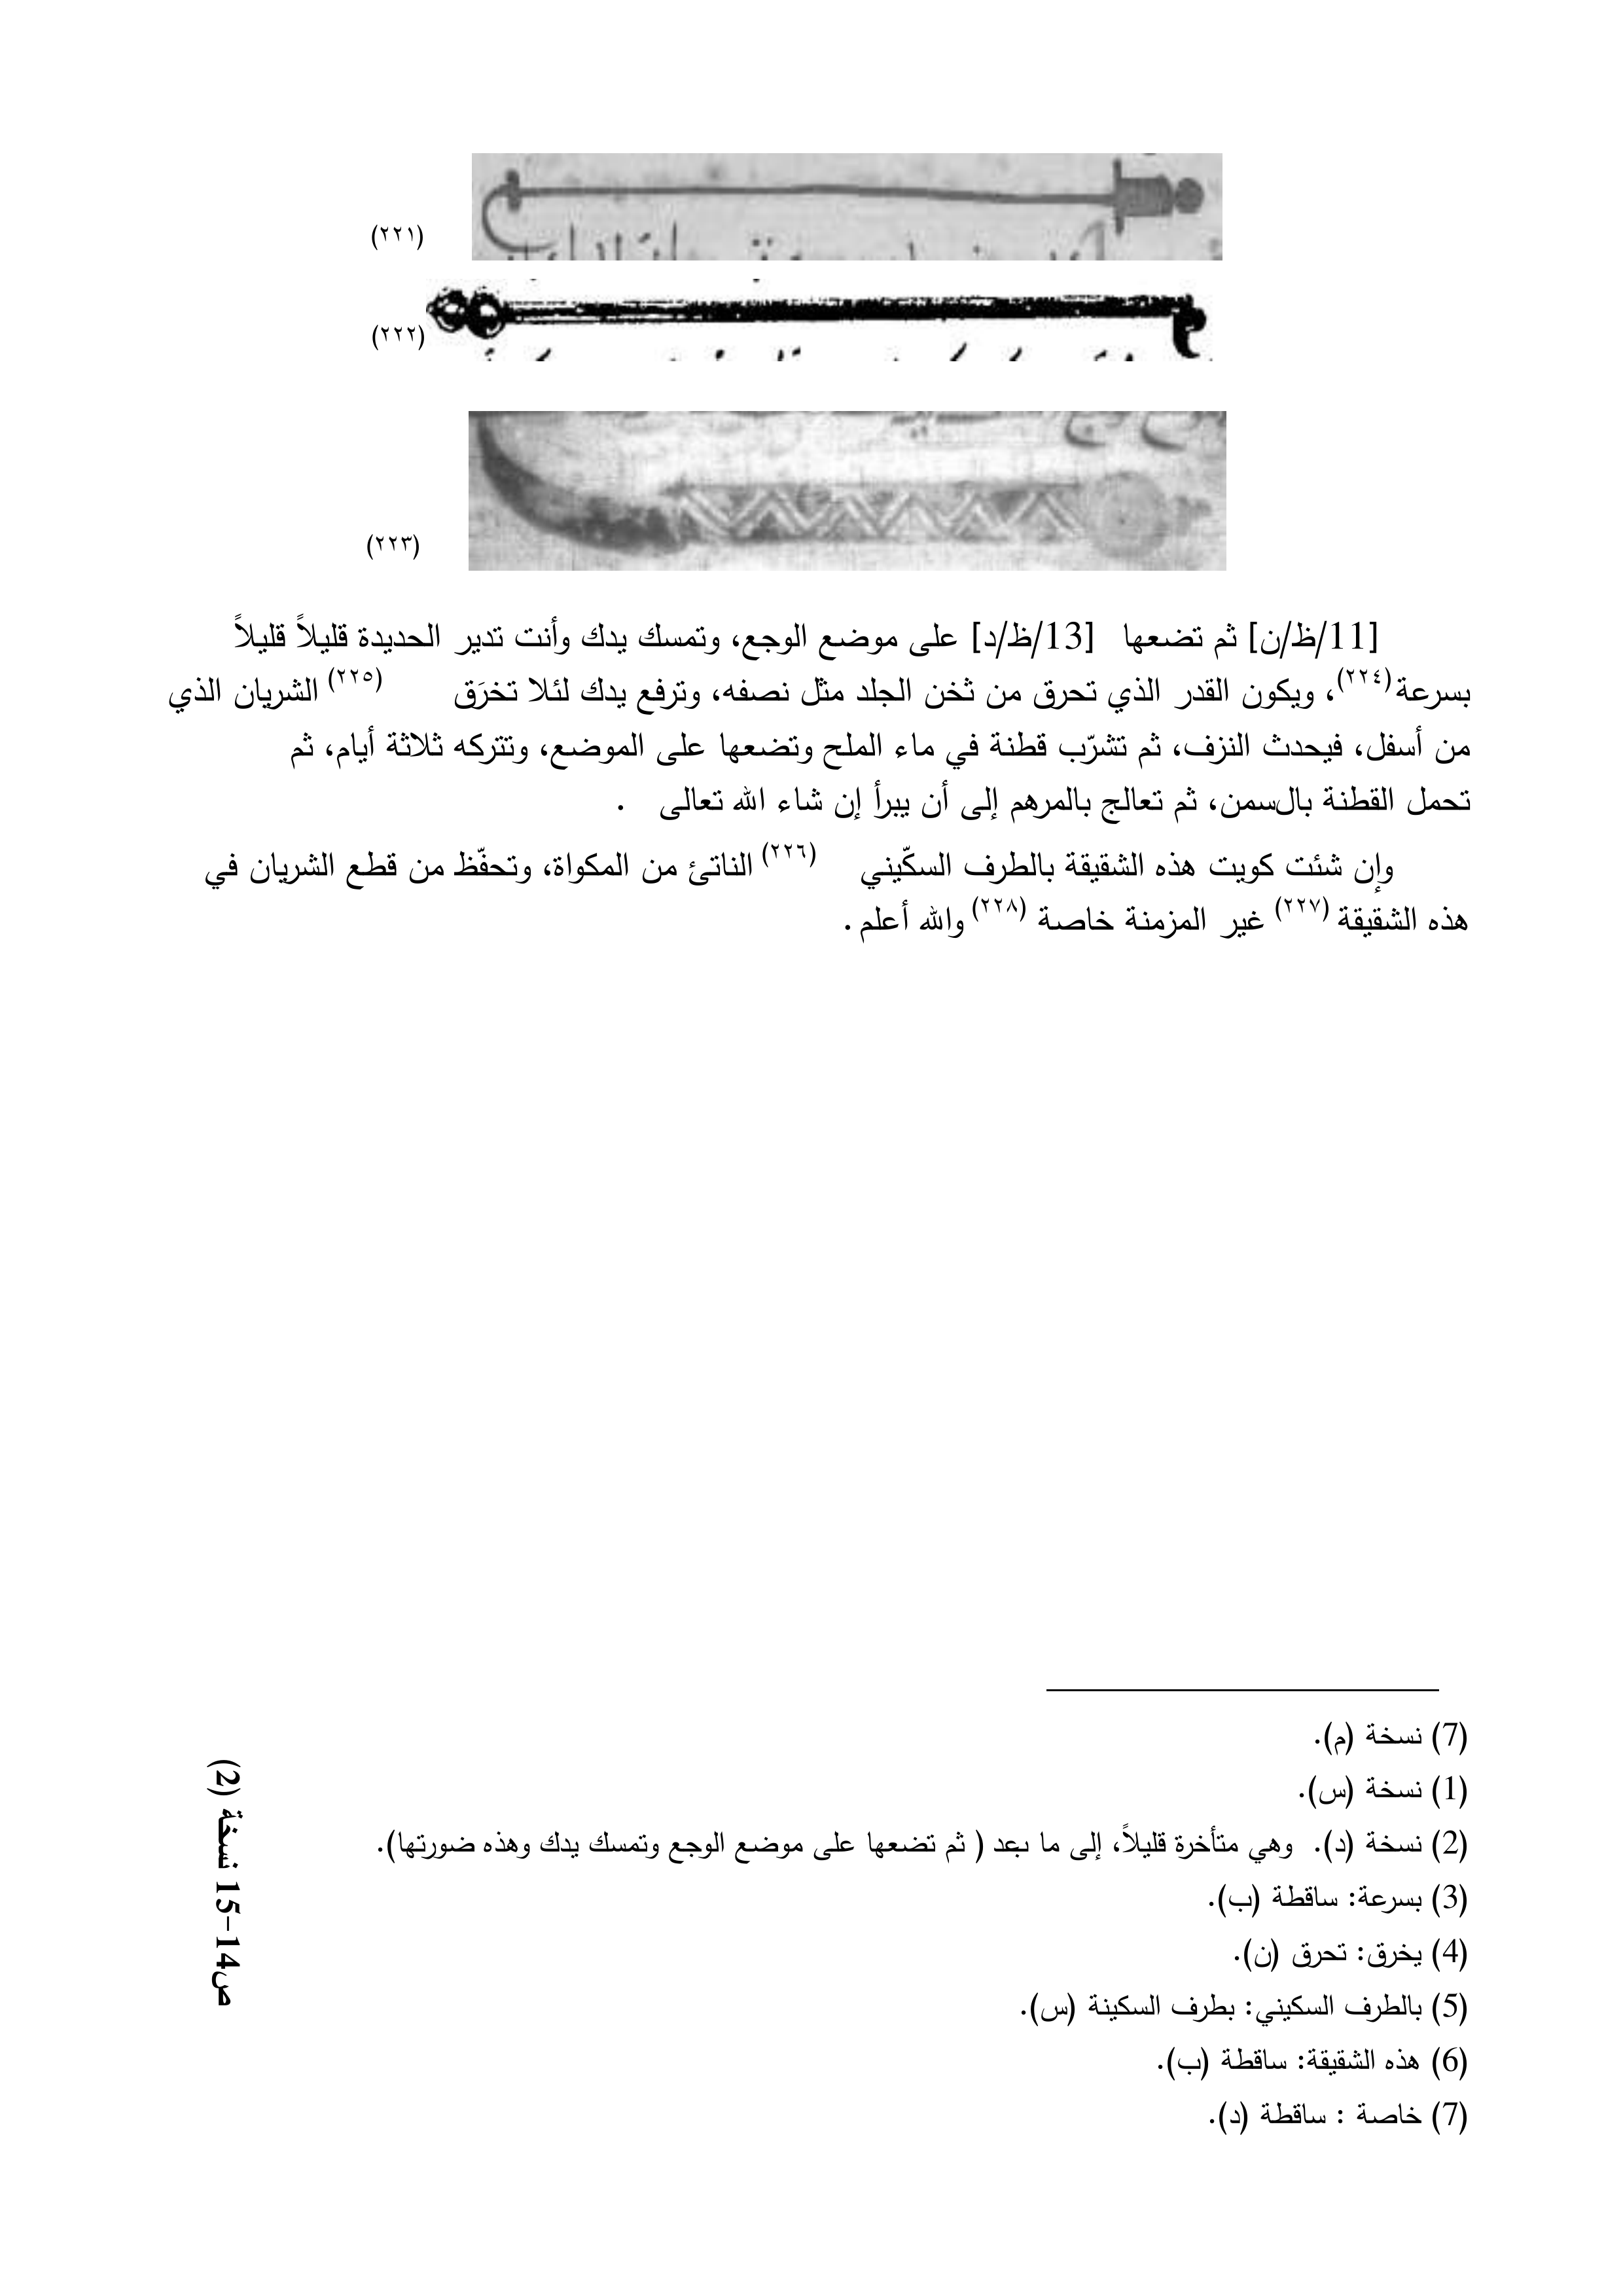 (٢٢١)
(٢٢٢)
(٢٢٣)
[11/ظ/ن] ثم تضعها [13/ظ/د] على موضع الوجع، وتمسك يدك وأنت تدير الحديدة قليلاً قليلاً
بسرعة(٢٢٤)، ويكون القدر الذي تحرق من ثخن الجلد مثل نصفه، وترفع يدك لئلا تخرَق (٢٢٥) الشريان الذي
من أسفل، فيحدث النزف، ثم تشرّب قطنة في ماء الملح وتضعها على الموضع، وتتركه ثلاثة أيام، ثم
تحمل القطنة بالسمن، ثم تعالج بالمرهم إلى أن يبرأ إن شاء الله تعالى .
وإن شئت كويت هذه الشقيقة بالطرف السكّيني (٢٢٦) الناتئ من المكواة، وتحفّظ من قطع الشريان في
هذه الشقيقة (٢٢٧) غير المزمنة خاصة (٢٢٨) والله أعلم .
(7) نسخة (م).
(1) نسخة (س).
(2) نسخة (د). وهي متأخرة قليلاً، إلى ما بعد ( ثم تضعها على موضع الوجع وتمسك يدك وهذه ضورتها).
(3) بسرعة: ساقطة (ب).
(4) يخرق: تحرق (ن).
(5) بالطرف السكيني: بطرف السكينة (س).
(6) هذه الشقيقة: ساقطة (ب).
(7) خاصة : ساقطة (د).
ص14-15 نسخة (2)